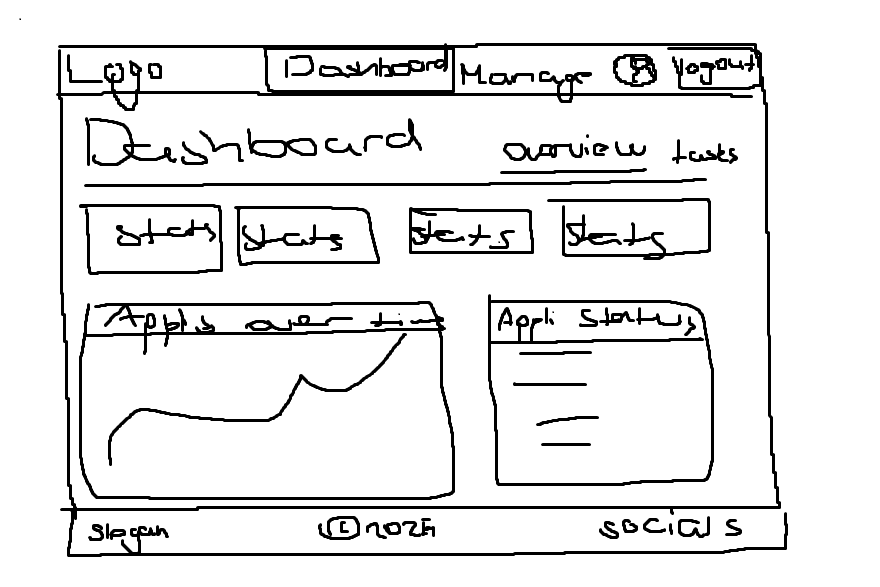 Logo Dashboard Manage Logout
Dashboard overview tasks
stats stats stats stats
Applis over time Appli Status
Slogan © 2025 SOCIALS